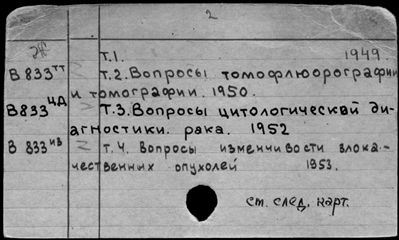 2
т.1. 1949.
В 833тт т.2. Вопросы томофлюорографии
и томографии. 1950.
В 833цд т.3. Вопросы цитологической ди-
агностики. рака. 1952
В 833ив т.4. Вопросы изменчивости злока-
чественных опухолей 1953.
см. след. карт.